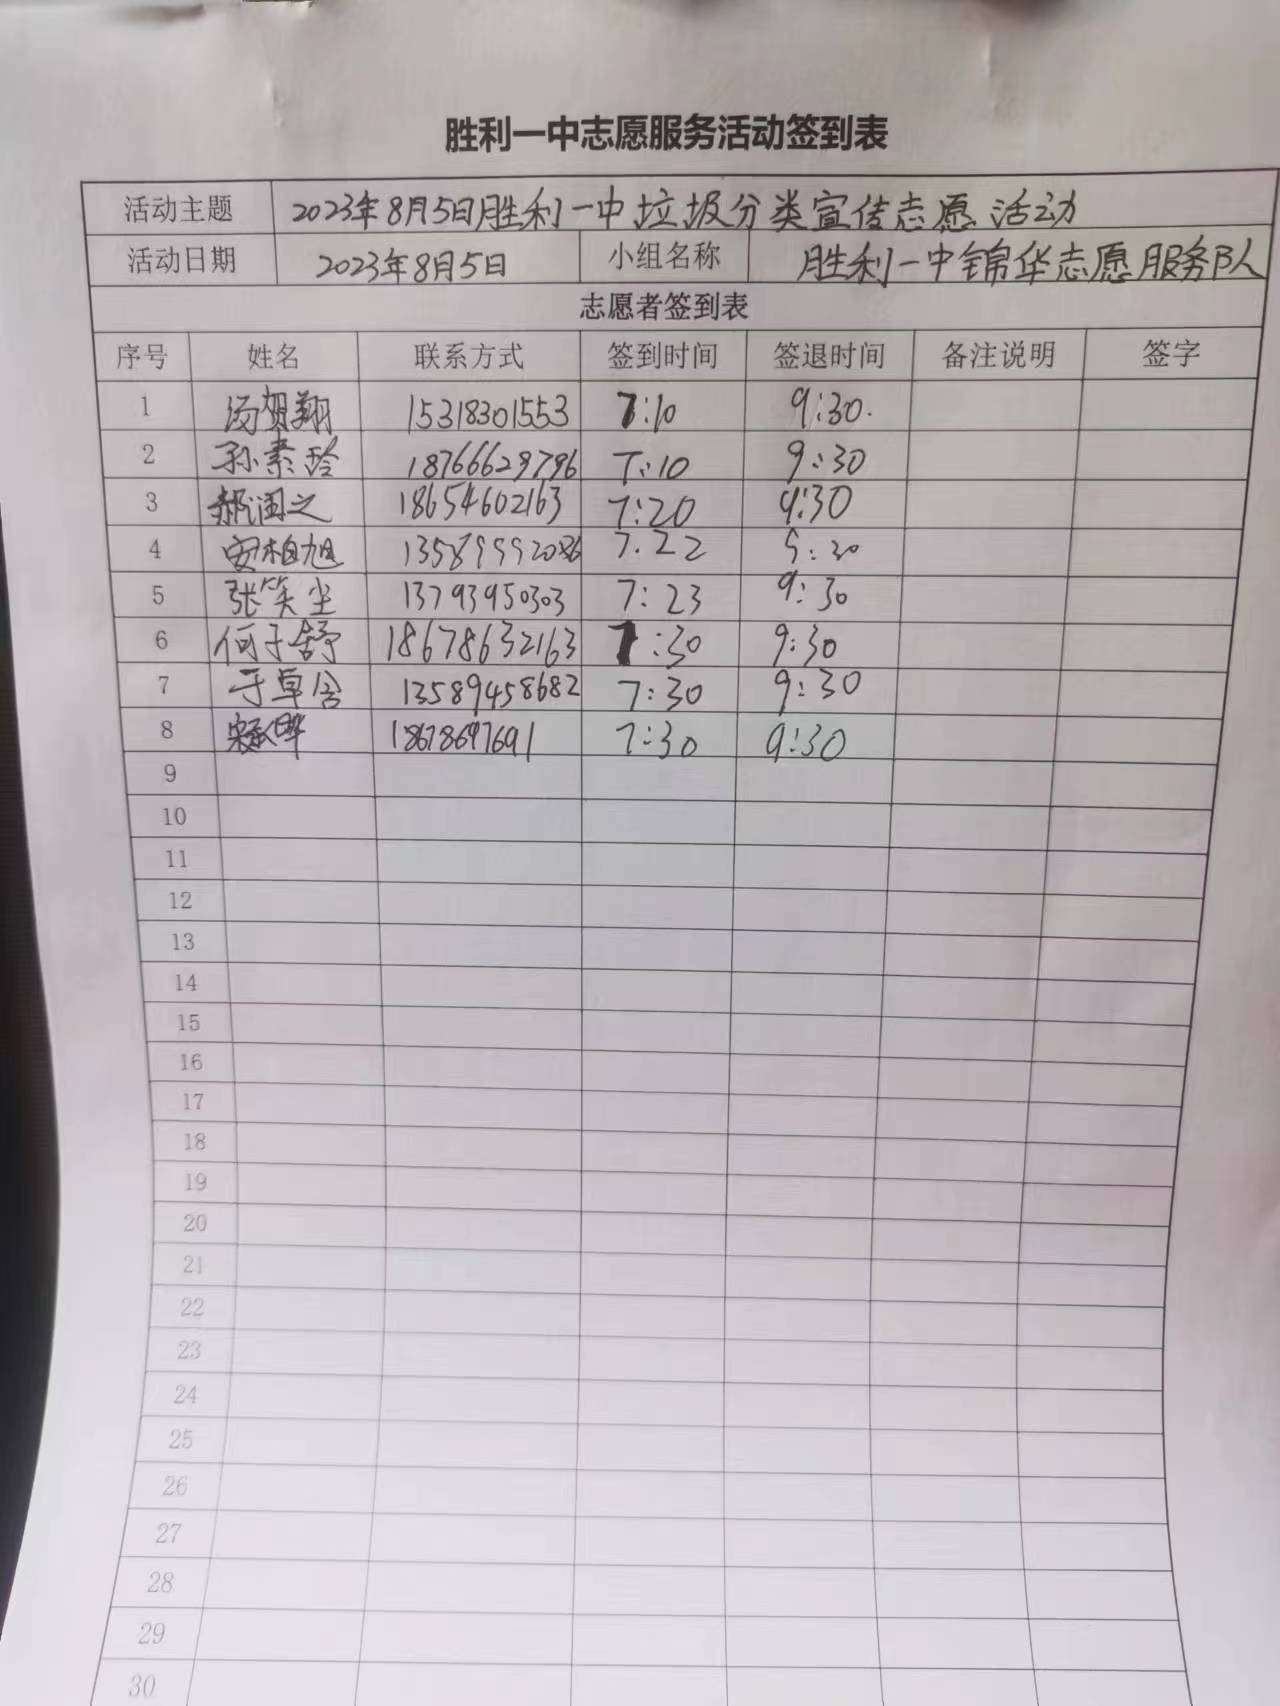 胜利一中志愿服务活动签到表
活动主题 2023年8月5日胜利一中垃圾分类宣传志愿活动
活动日期 2023年8月5日 小组名称 胜利一中锦华志愿服务队
志愿者签到表
序号 姓名 联系方式 签到时间 签退时间 备注说明 签字
1 汤贺翔 15318301553 7:10 9:30.
2 孙素玲 18766629796 7:10 9:30
3 郝润之 18654602163 7:20 9:30
4 安柏旭 13589992086 7:22 9:30
5 张笑尘 13793950303 7:23 9:30
6 何子舒 18678632163 7:30 9:30
7 于卓含 13589458682 7:30 9:30
8 18678697691 7:30 9:30
9
10
11
12
13
14
15
16
17
18
19
20
21
22
23
24
25
26
27
28
29
30